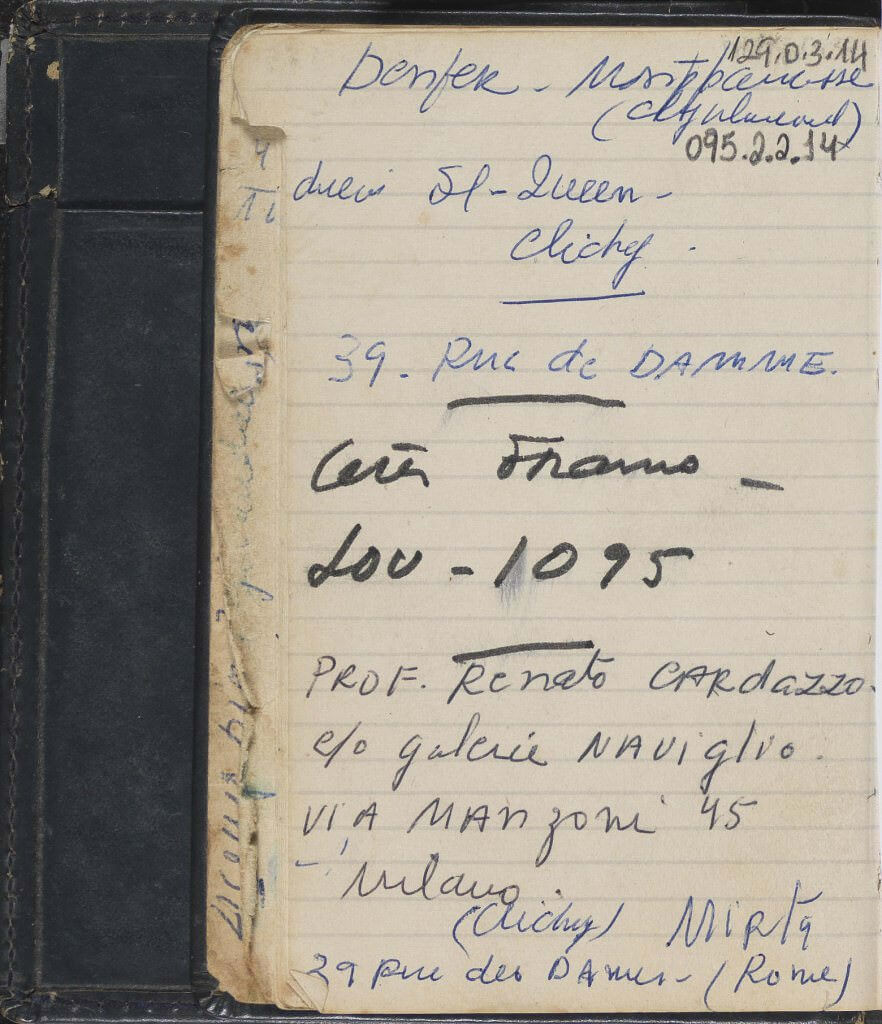 129.D.3.14
Denfer - Montparnasse
095.2.2.14
St-Queen -
Clichy .
39 - Rue de DAMME.
Franco -
LOU - 1095
PROF. Renato CARdazzo.
c/o galerie NAViglio.
VIA MAnzoni 45
Milano.
(Clichy) Mirta
39 Rue des DAmes - (Rome)